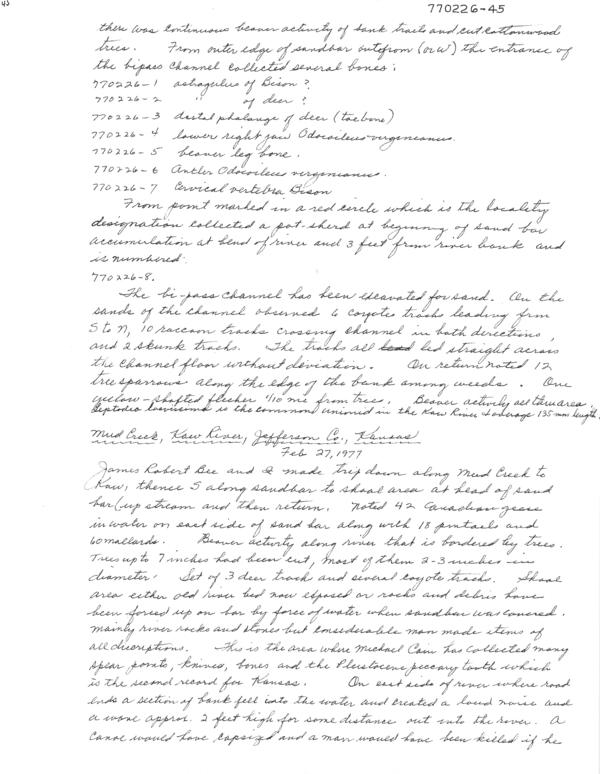 45
770226-45
there was continuous beaver activity of bank trails and cut cottonwood
trees. From outer edge of sandbar outofrom (or W) the entrance of
the bipass channel collected several bones:
770226-1 astragulus of Bison?
770226-2 " of deer?
770226-3 distal phalange of deer (toe bone)
770226-4 lower right jaw Odocoileus virginianus.
770226-5 beaver leg bone.
770226-6 Antler Odocoileus virginianus.
770226-7 Cervical vertebra Bison
From point marked in a red circle which is the locality
designation collected a pot-sherd at beginning of sand bar
accumulation at bend of river and 3 feet from river bank and
is numbered
770226-8.
The bi-pass channel has been excavated for sand. On the
sands of the channel observed 6 coyote tracks leading from
S to N, 10 raccoon tracks crossing channel in both directions,
and 2 skunk tracks. The tracks all lead led straight across
the channel floor without deviation. On return noted 12
tree sparrows along the edge of the bank among weeds. One
yellow-shafted flicker 1/10 mi from trees. Beaver activity all thru area.
Leptodea is the common unionid in the Kaw River & average 135 mm length.
Mud Creek, Kaw River, Jefferson Co., Kansas
Feb 27, 1977
James Robert Bee and I made trip down along Mud Creek to
Kaw, thence S along sandbar to shoal area at head of sand
bar (up stream and then return. Noted 42 Canadian geese
in water on east side of sand bar along with 18 pintails and
60 mallards. Beaver activity along river that is bordered by trees.
Trees up to 7 inches had been cut, most of them 2-3 inches in
diameter. Set of 3 deer track and several coyote tracks. Shoal
area either old river bed now exposed or rocks and debris have
been forced up on bar by force of water when sandbar was covered.
Mainly river rocks and stones but considerable man made items of
all discriptions. This is the area where Michael Cain has collected many
spear points, knives, bones and the Pleistocene peccary tooth which
is the second record for Kansas. On east side of river where road
ends a section of bank fell into the water and created a loud noise and
a wave approx. 2 feet high for some distance out into the river. A
canoe would have capsized and a man would have been killed if he